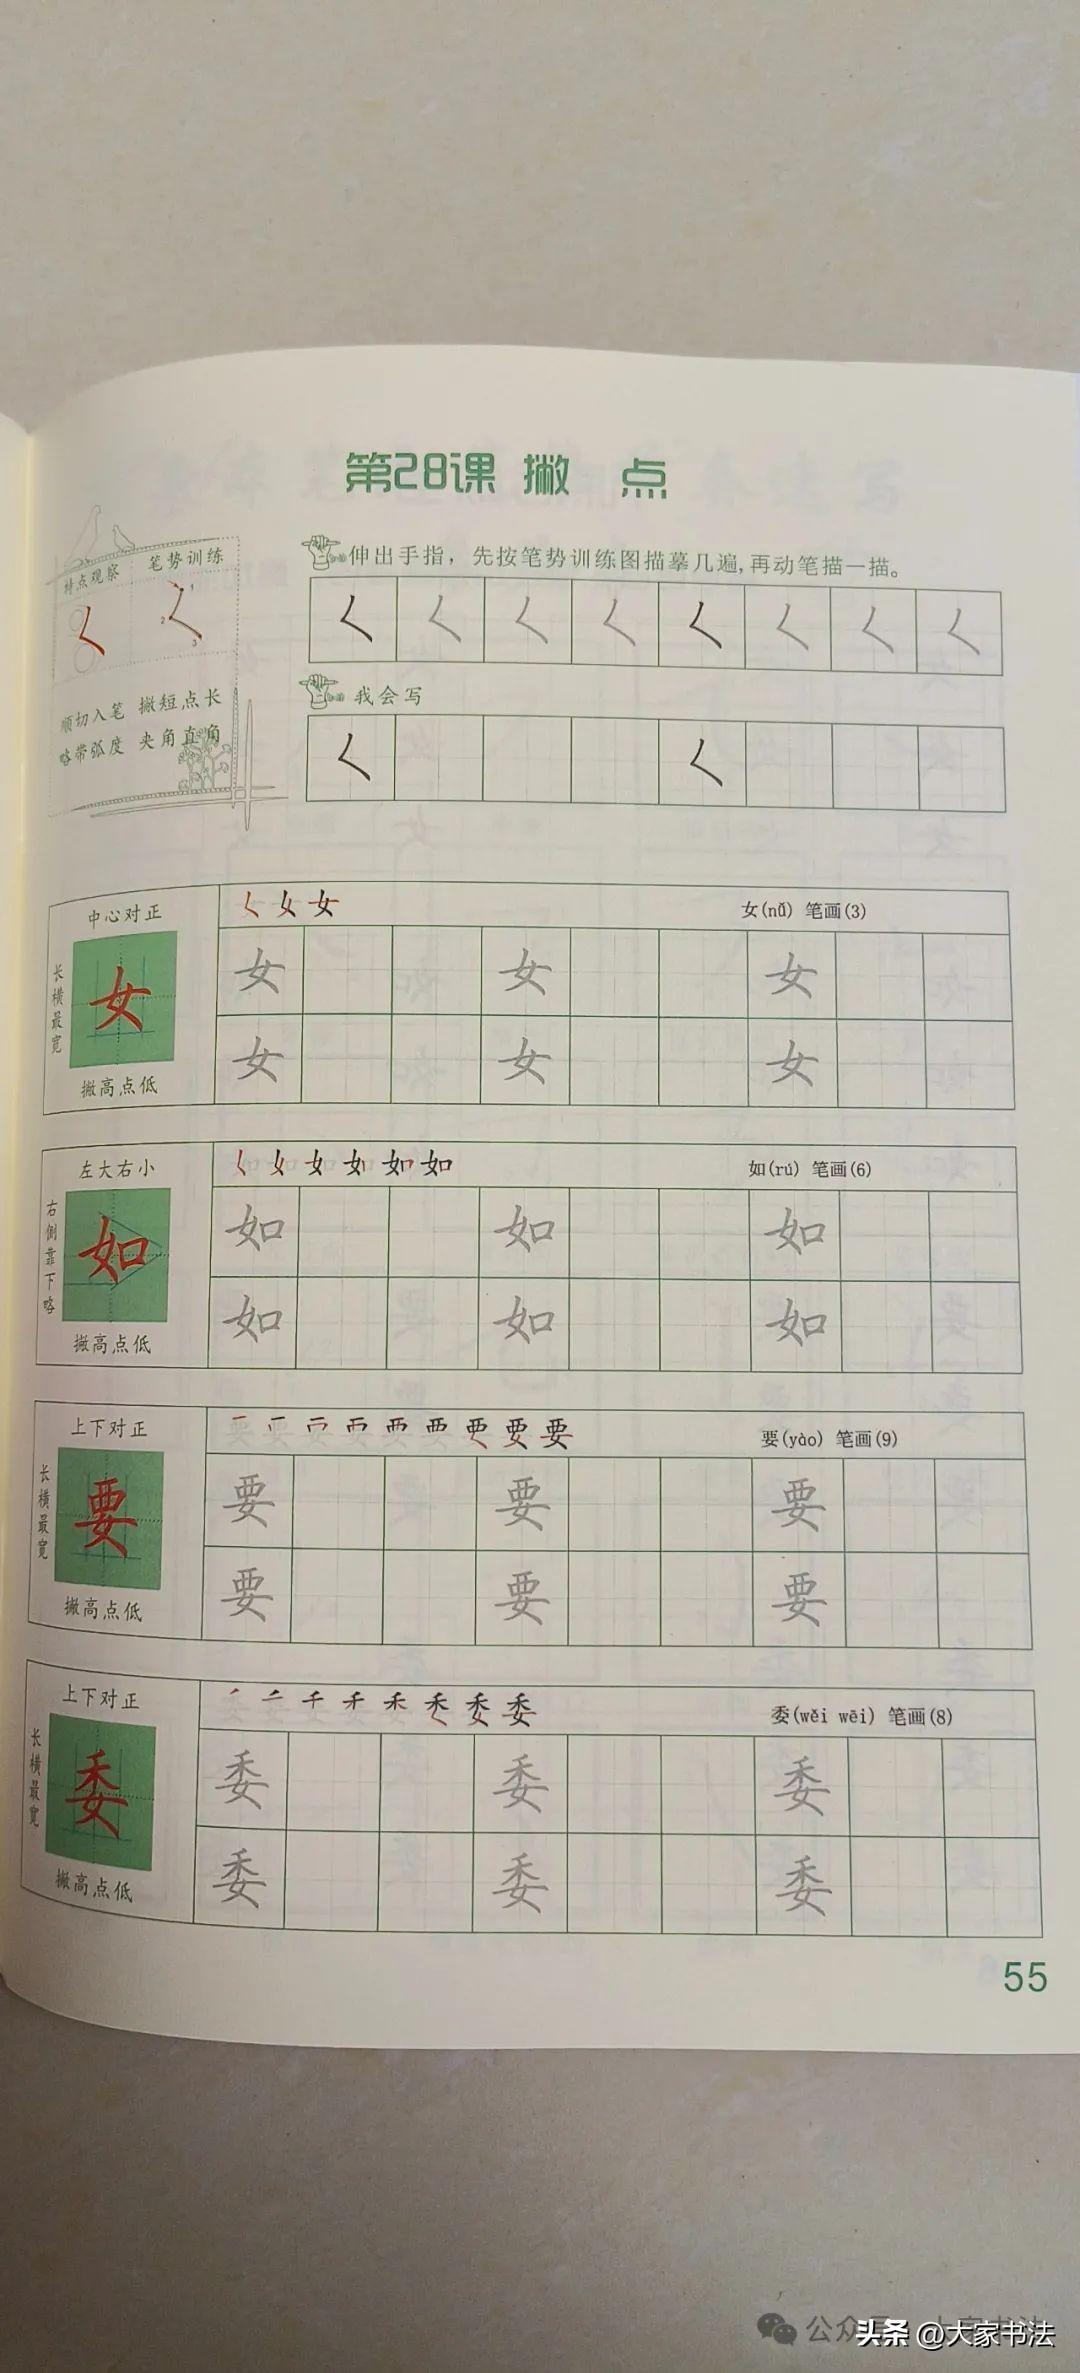 第28课 撇 点
特点观察 笔势训练
顺切入笔 撇短点长
略带弧度 夹角直角
伸出手指，先按笔势训练图描摹几遍,再动笔描一描。
く く く く く く く く
我会写
く く
中心对正
长横最宽
女
撇高点低
く 女 女
女(nǚ) 笔画(3)
女 女 女
女 女 女
左大右小
右侧靠下略
如
撇高点低
如(rú) 笔画(6)
如 如 如
如 如 如
上下对正
长横最宽
要
撇高点低
要(yào) 笔画(9)
要 要 要
要 要 要
上下对正
长横最宽
委
撇高点低
委(wěi wēi) 笔画(8)
委 委 委
委 委 委
55
头条 @大家书法